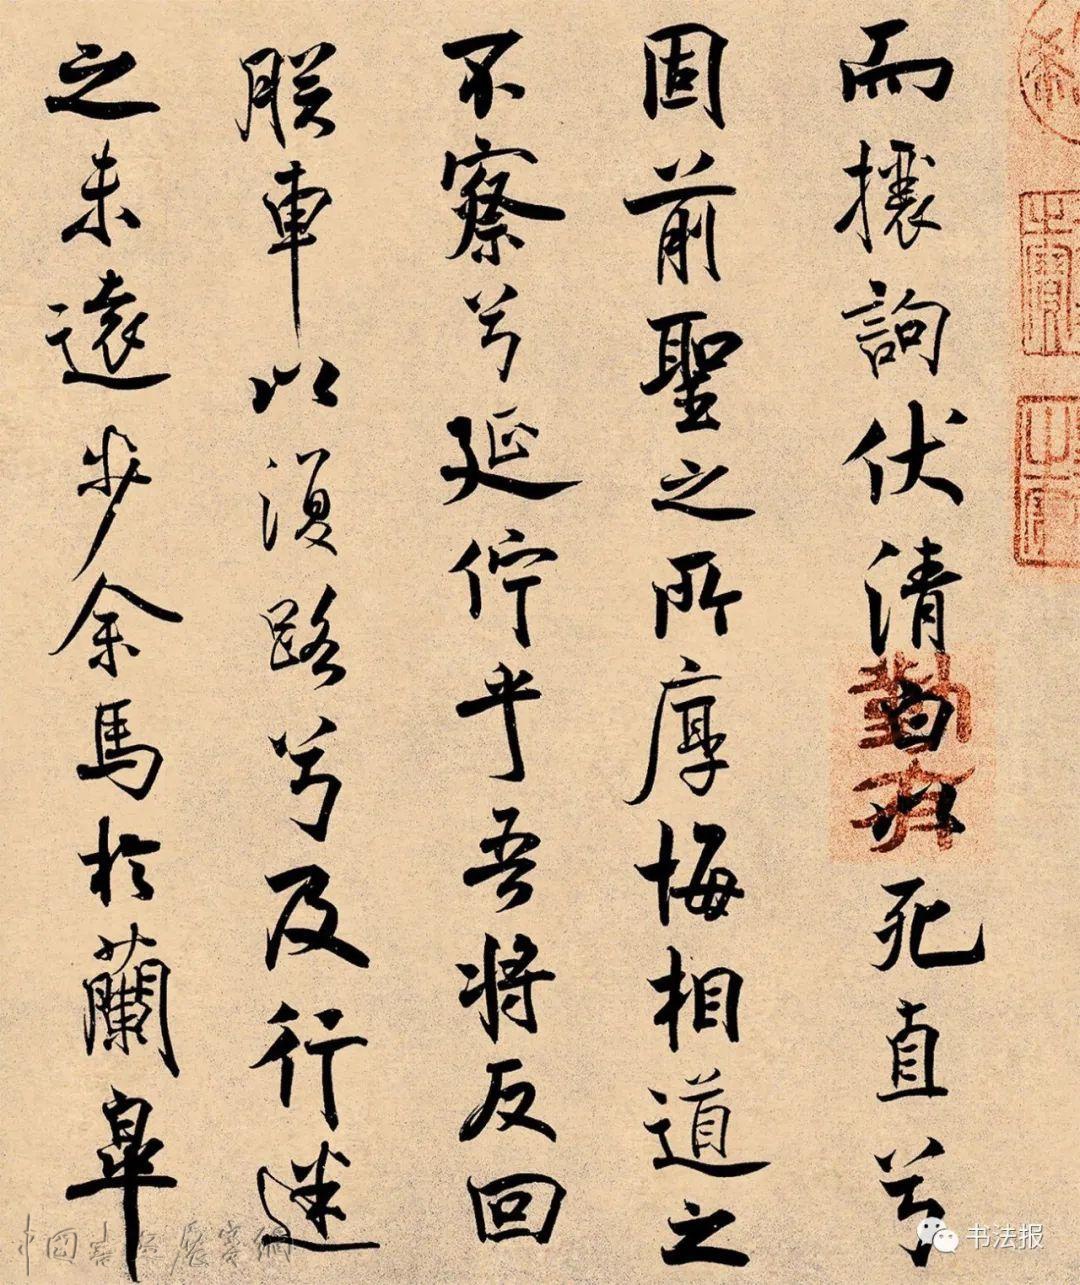 而攘訽伏清白以死直兮
固前聖之所厚悔相道之
不察兮延佇乎吾将反回
朕車以復路兮及行迷
之未遠步余馬於蘭皐
书法报
中國書法展賽網